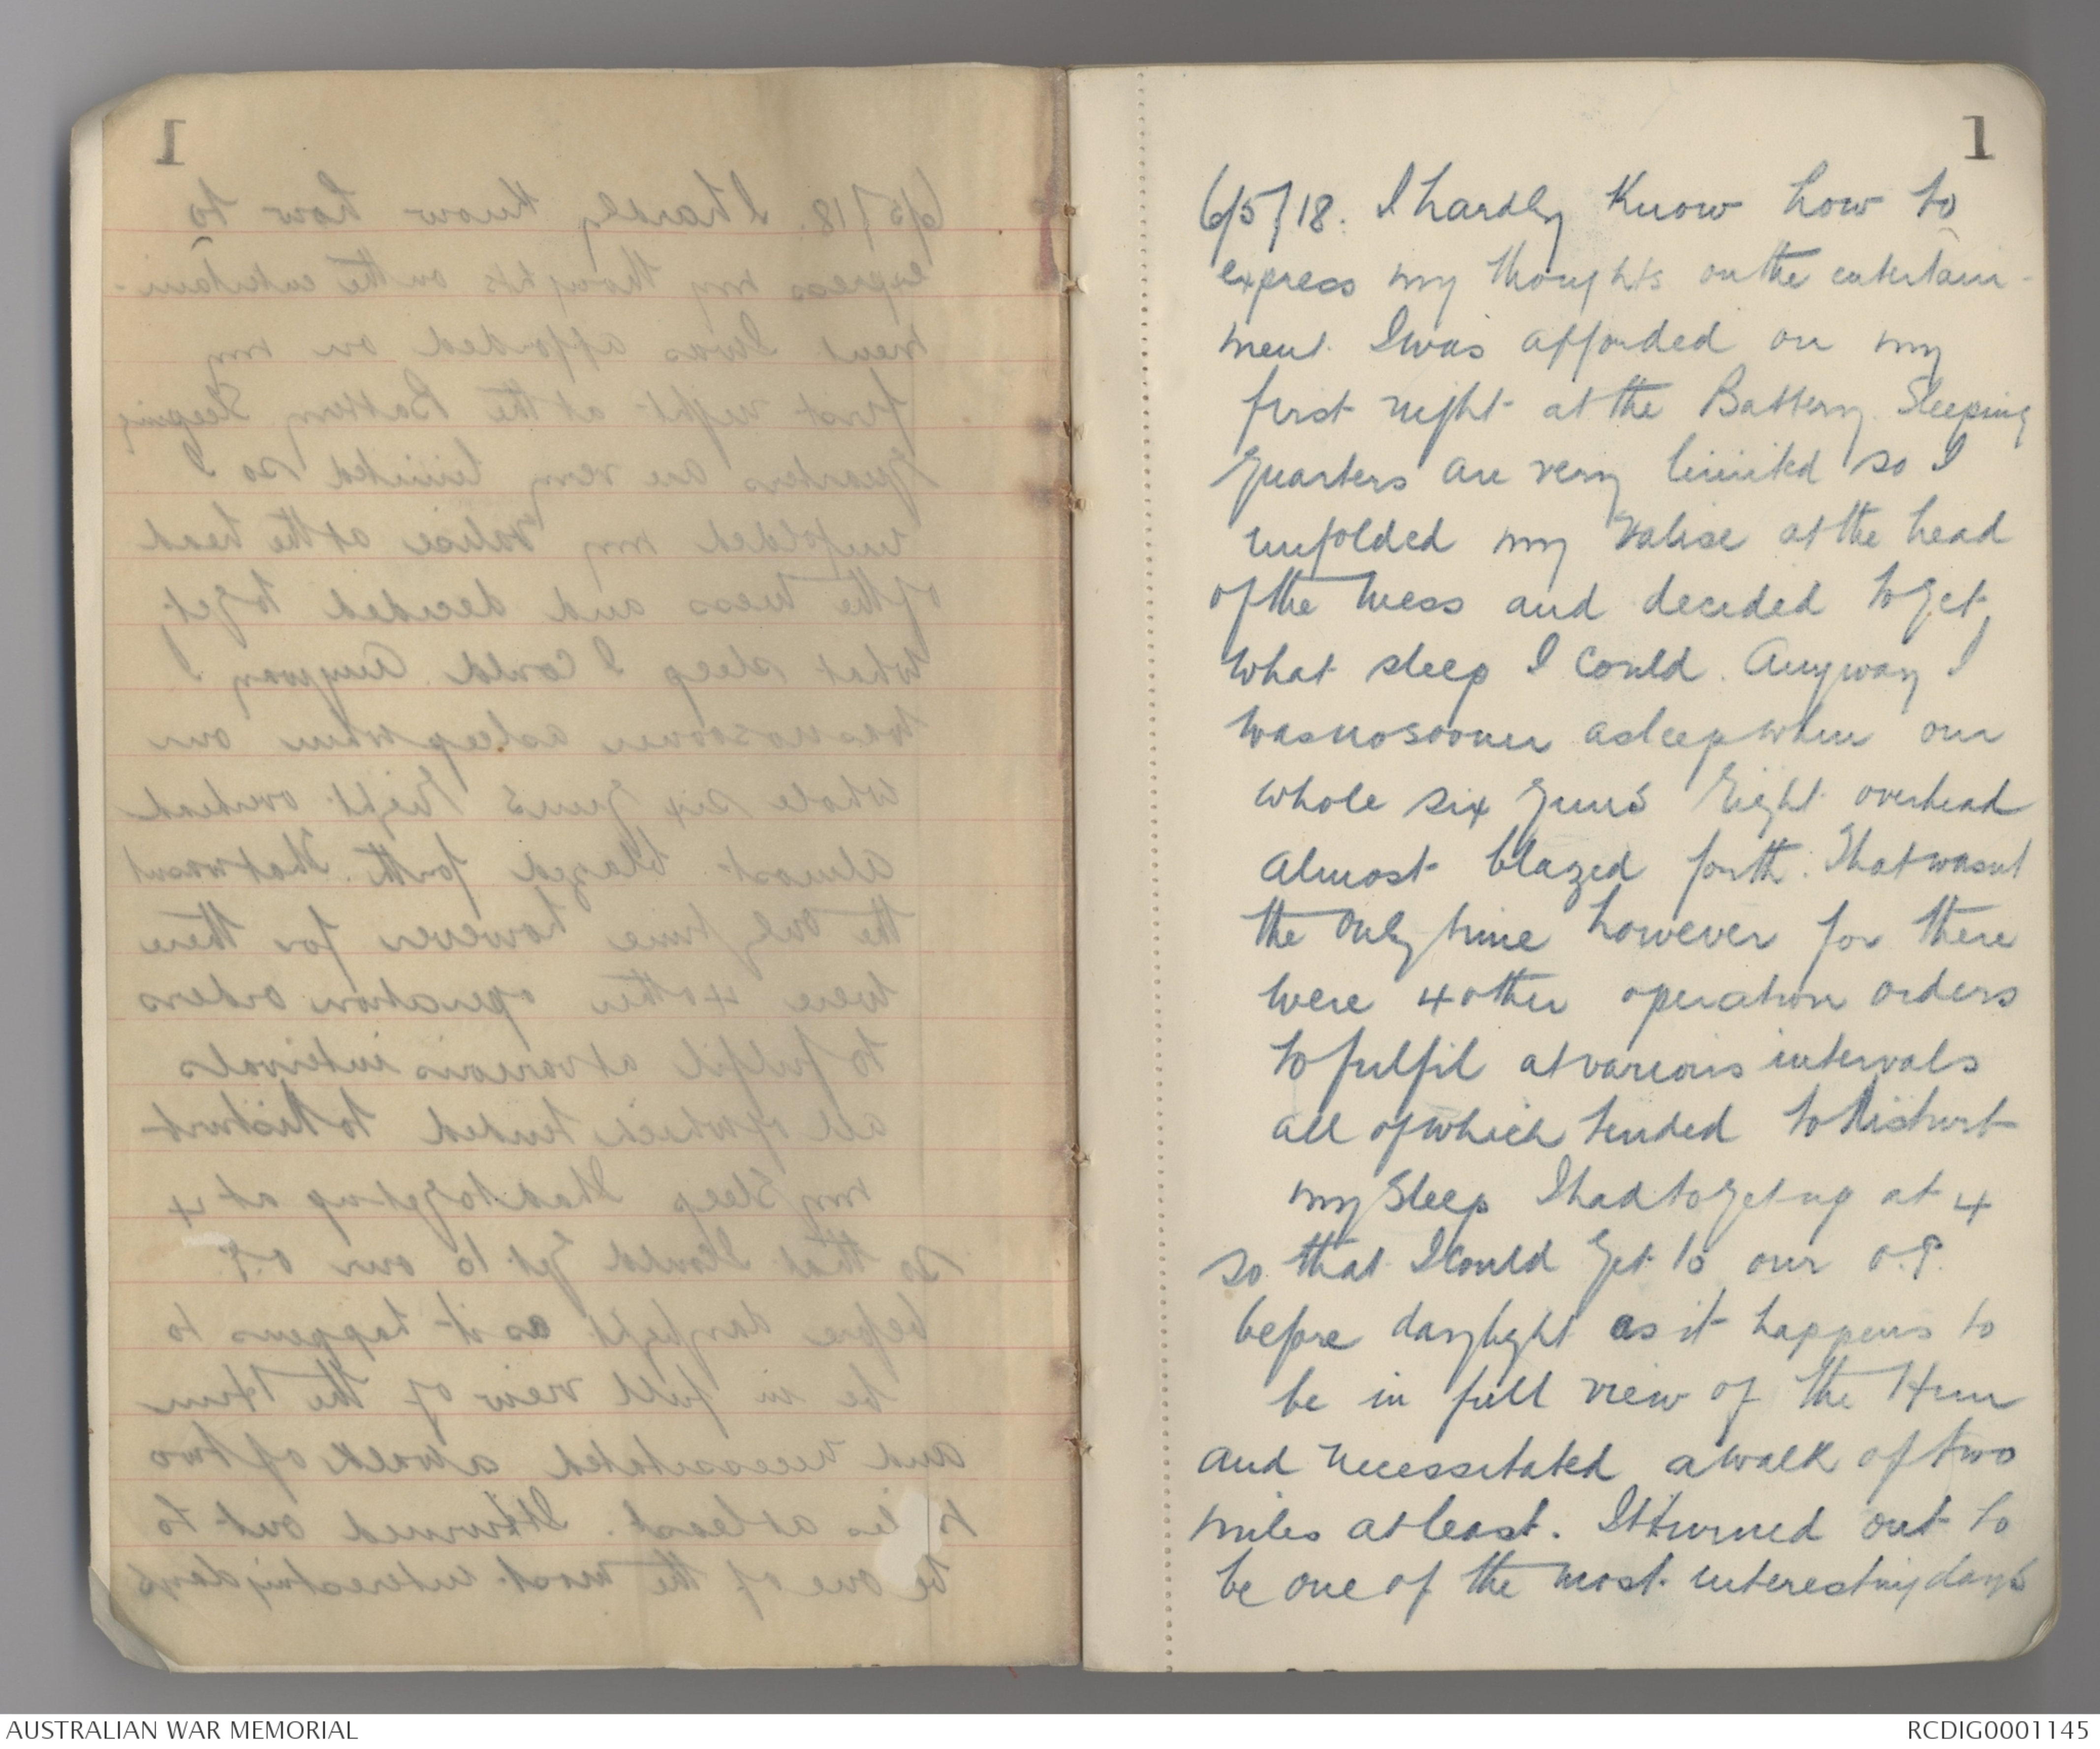 1
6/5/18. I hardly know how to
express my thoughts on the entertain-
ment I was afforded on my
first night at the Battery. Sleeping
quarters are very limited so I
unfolded my valise at the head
of the mess and decided to get
what sleep I could. Anyway I
was no sooner asleep when our
whole six guns right overhead
almost blazed forth. That wasnt
the only time however for there
were 4 other operation orders
to fulfil at various intervals
all of which tended to disturb
my sleep I had to get up at 4
so that I could get to our O.P.
before daylight as it happens to
be in full view of the Hun
and necessitated a walk of two
miles at least. It turned out to
be one of the most interesting days
AUSTRALIAN WAR MEMORIAL
RCDIG0001145